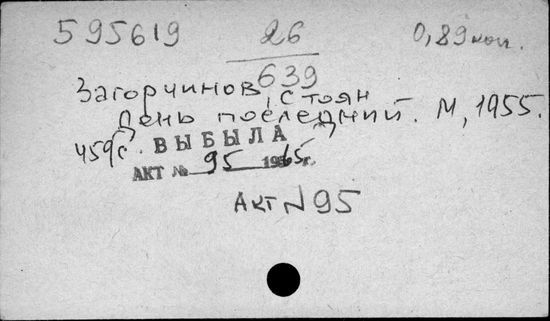 595619 26 0,89 коп.
639
Загорчинов, Стоян
День последний. М, 1955.
459с. ВЫБЫЛА
АКТ № 95 1965г.
Акт N 95